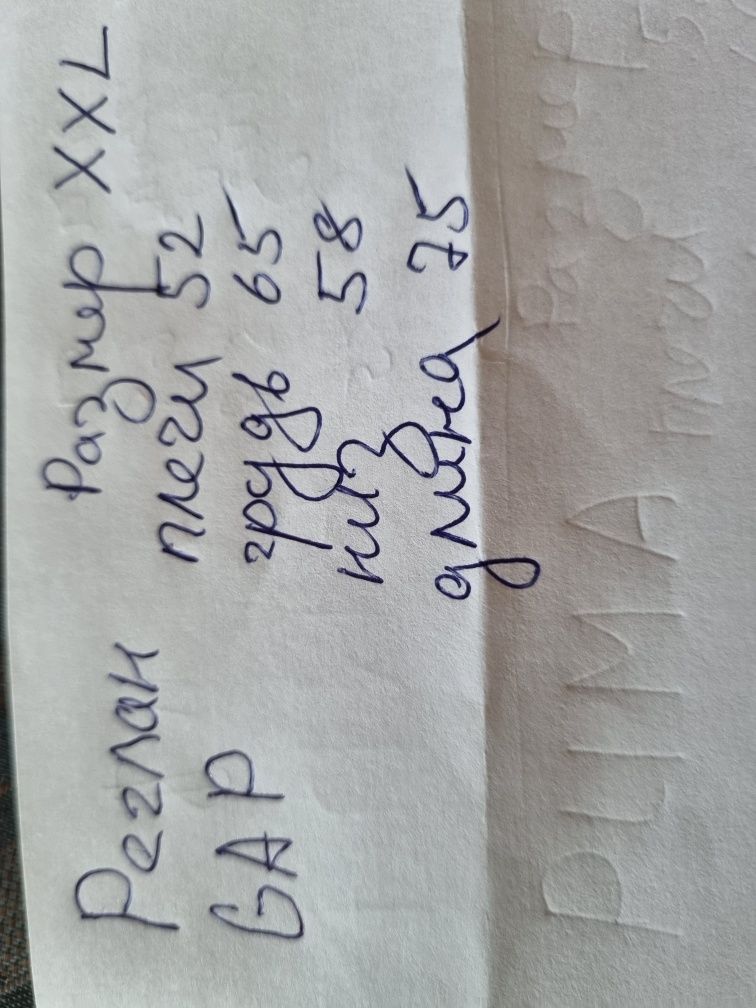 Реглан Размер XXL
GAP плечи 52
грудь 65
низ 58
длина 75
PUMA Размер